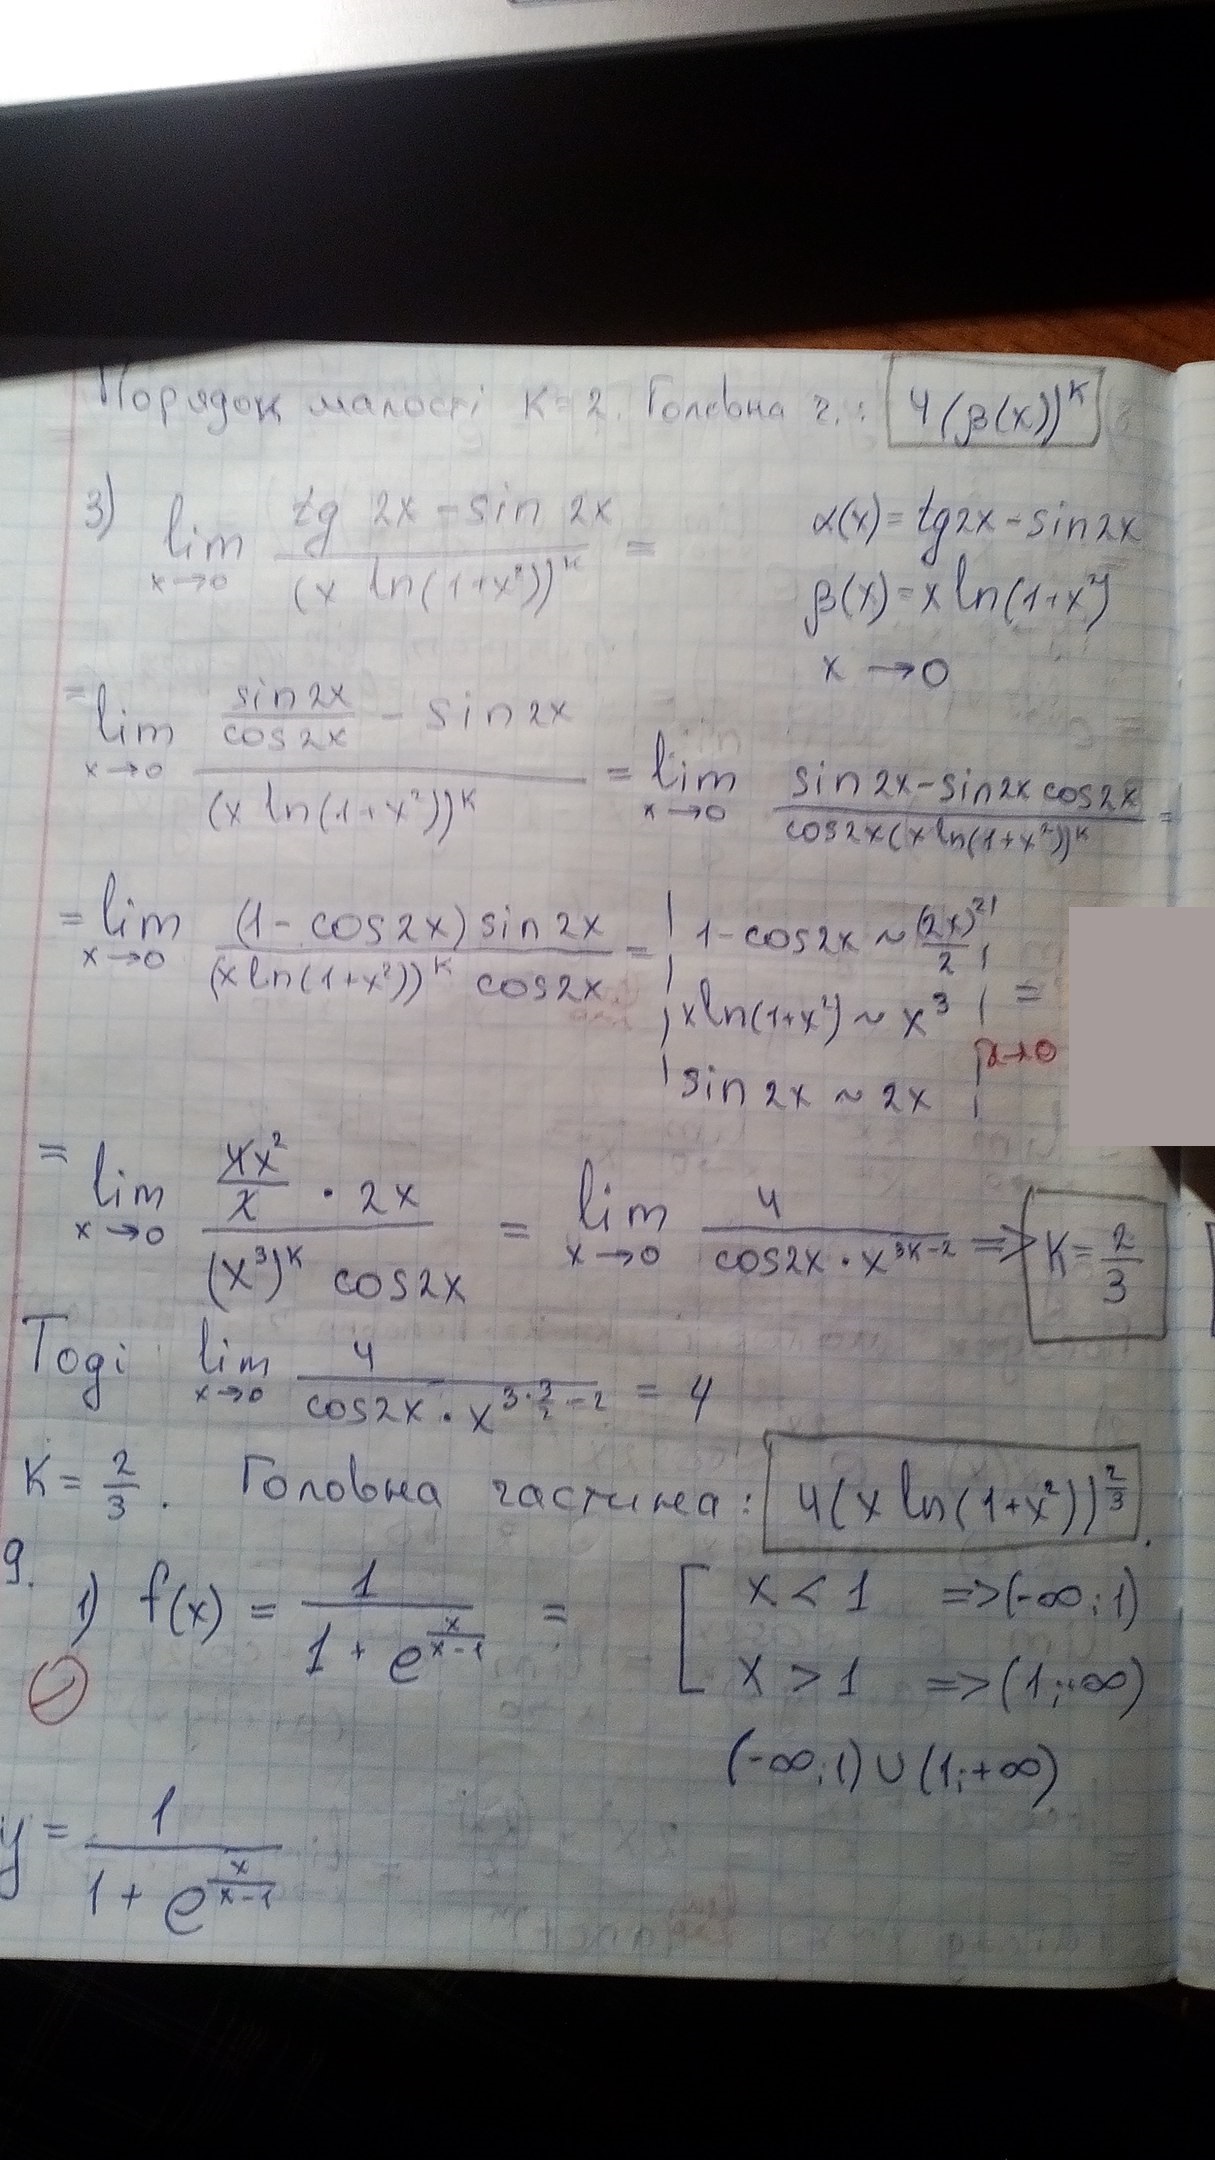 Порядок малості K=2. Головна ч.: 4(β(x))^K
3) lim x→0 (tg 2x - sin 2x)/(x ln(1+x²))^K =
α(x) = tg2x - sin2x
β(x) = x ln(1+x²)
x → 0
= lim x→0 (sin2x/cos2x - sin2x)/(x ln(1+x²))^K = lim x→0 (sin2x - sin2x cos2x)/(cos2x(x ln(1+x²))^K) =
= lim x→0 ((1-cos2x) sin2x)/((x ln(1+x²))^K cos2x) = | 1-cos2x ~ (2x)²/2 |
| x ln(1+x²) ~ x³ | =
x→0
| sin2x ~ 2x |
= lim x→0 (4x²/2 · 2x)/((x³)^K cos2x) = lim x→0 4/(cos2x · x^(3K-2)) => K = 2/3
Тоді lim x→0 4/(cos2x · x^(3·3/2-2)) = 4
K = 2/3. Головна частина: 4(x ln(1+x²))^(2/3).
9.
1) f(x) = 1/(1+e^(x/(x-1))) = [ x < 1 => (-∞;1)
x > 1 => (1;+∞)
(-∞;1) ∪ (1;+∞)
y = 1/(1+e^(x/(x-1)))